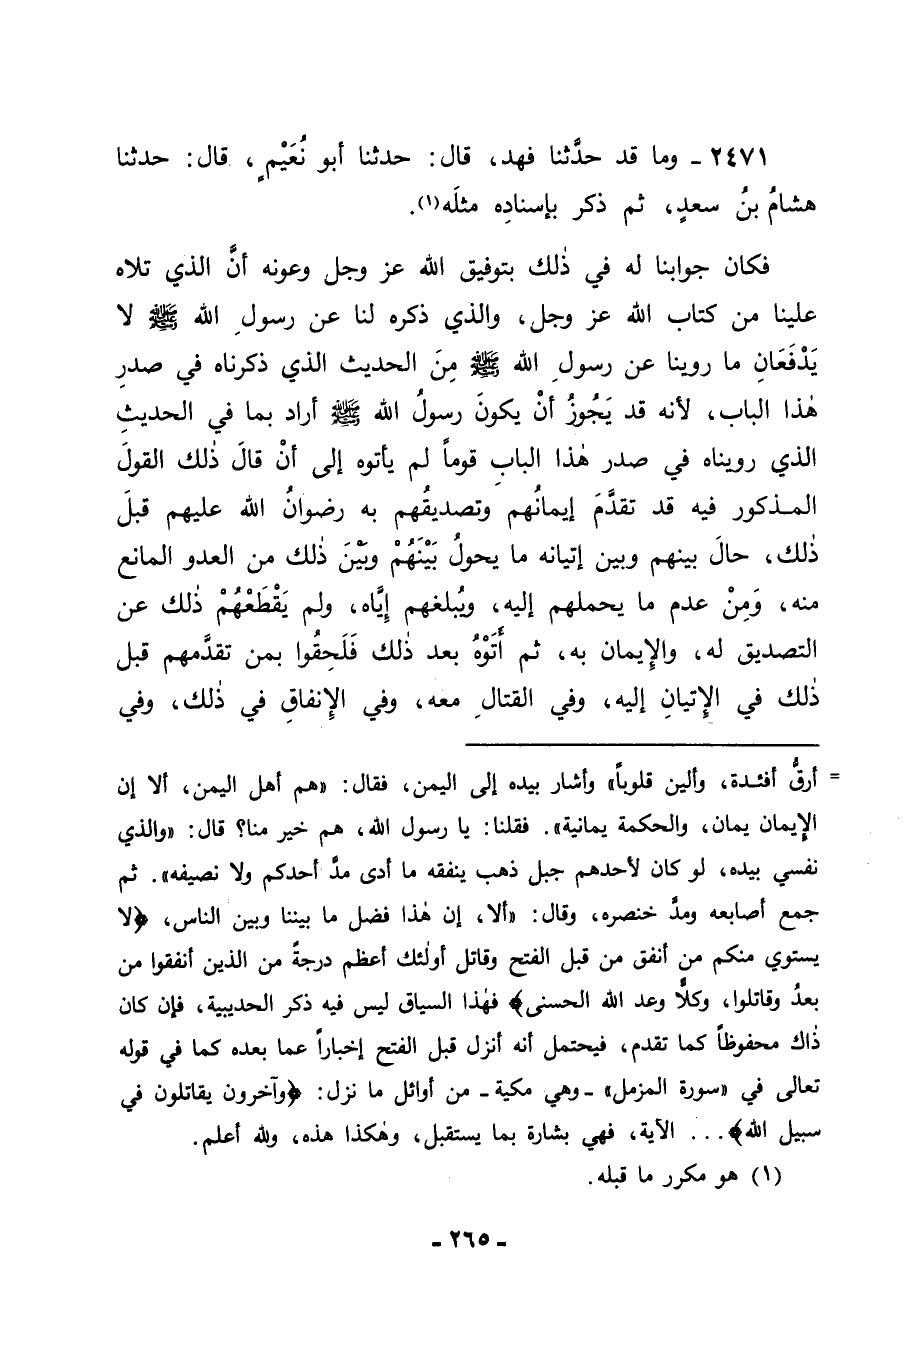 ٢٤٧١ ـ وما قد حدَّثنا فهد، قال: حدثنا أبو نُعَيْمٍ، قال: حدثنا
هشامُ بنُ سعدٍ، ثم ذكر بإسنادِه مثلَه(١).
فكان جوابنا له في ذٰلك بتوفيق الله عز وجل وعونه أنَّ الذي تلاه
علينا من كتاب الله عز وجل، والذي ذكره لنا عن رسولِ الله ﷺ لا
يَدْفَعَانِ ما روينا عن رسولِ الله ﷺ مِنَ الحديث الذي ذكرناه في صدرِ
هٰذا الباب، لأنه قد يَجُوزُ أنْ يكونَ رسولُ الله ﷺ أراد بما في الحديثِ
الذي رويناه في صدر هٰذا البابِ قوماً لم يأتوه إلى أنْ قالَ ذٰلك القولَ
المـذكور فيه قد تقدَّمَ إيمانُهم وتصديقُهم به رضوانُ الله عليهم قبلَ
ذٰلك، حالَ بينهم وبين إتيانه ما يحولُ بَيْنَهُمْ وبَيْنَ ذٰلك من العدو المانع
منه، وَمِنْ عدم ما يحملهم إليه، ويُبلغهم إيَّاه، ولم يَقْطَعْهُمْ ذٰلك عن
التصديق له، والإيمان به، ثم أَتَوْهُ بعد ذٰلك فَلَحِقُوا بمن تقدَّمهم قبل
ذٰلك في الإِتيانِ إليه، وفي القتالِ معه، وفي الإِنفاقِ في ذٰلك، وفي
= أرقُّ أفئـدة، وألين قلوباً» وأشار بيده إلى اليمن، فقال: «هم أهل اليمن، ألا إن
الإِيمان يمان، والحكمة يمانية». فقلنا: يا رسول الله، هم خير منا؟ قال: «والذي
نفسي بيده، لو كان لأحدهم جبل ذهب ينفقه ما أدى مدَّ أحدكم ولا نصيفه». ثم
جمع أصابعه ومدَّ خنصره، وقال: «ألا، إن هٰذا فضل ما بيننا وبين الناس، ﴿لا
يستوي منكم من أنفق من قبل الفتح وقاتل أولٰئك أعظم درجةً من الذين أنفقوا من
بعدُ وقاتلوا، وكلًّا وعد الله الحسنى﴾ فهٰذا السياق ليس فيه ذكر الحديبية، فإن كان
ذٰاك محفوظاً كما تقدم، فيحتمل أنه أنزل قبل الفتح إخباراً عما بعده كما في قوله
تعالى في «سورة المزمل» ـ وهي مكية ـ من أوائل ما نزل: ﴿وآخرون يقاتلون في
سبيل الله﴾... الآية، فهي بشارة بما يستقبل، وهٰكذا هذه، ولله أعلم.
(١) هو مكرر ما قبله.
ـ ٢٦٥ ـ